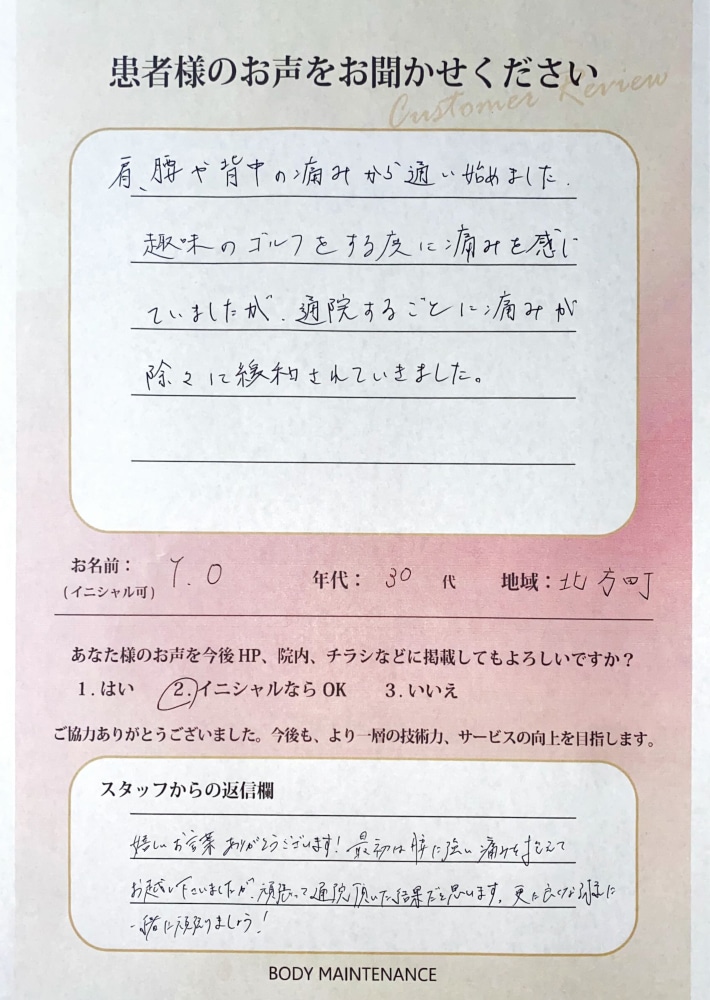 患者様のお声をお聞かせください
Customer Review
肩、腰や背中の痛みから通い始めました.
趣味のゴルフをする度に痛みを感じ
ていましたが、通院するごとに痛みが
除々に緩和されていきました。
お名前：
(イニシャル可) Y.O 年代： 30 代 地域：北方町
あなた様のお声を今後 HP、院内、チラシなどに掲載してもよろしいですか？
1. はい 2. イニシャルなら OK 3. いいえ
ご協力ありがとうございました。今後も、より一層の技術力、サービスの向上を目指します。
スタッフからの返信欄
嬉しいお言葉ありがとうございます! 最初は腰に強い痛みを抱えて
お越し下さいましたが、頑張って通院頂いた結果だと思います。更に良くなる様に
一緒に頑張りましょう!
BODY MAINTENANCE